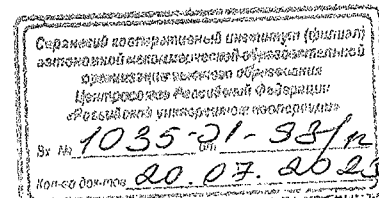 Саранский кооперативный институт (филиал)
автономной некоммерческой образовательной
организации высшего образования
Центросоюза Российской Федерации
«Российский университет кооперации»
Вх № 1035-21-33/п от
Кол-во док-тов 20.07.2023